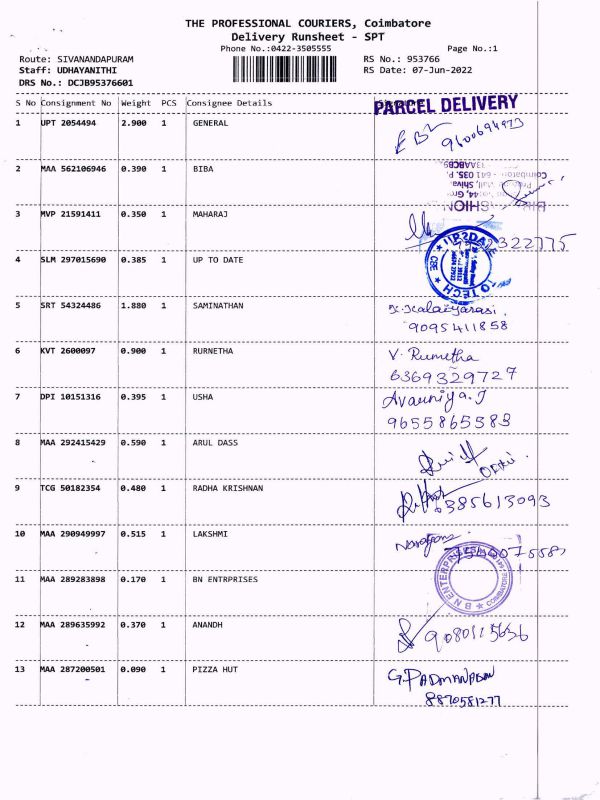 THE PROFESSIONAL COURIERS, Coimbatore
Delivery Runsheet - SPT
Phone No.:0422-3505555 Page No.:1
Route: SIVANANDAPURAM RS No.: 953766
Staff: UDHAYANITHI RS Date: 07-Jun-2022
DRS No.: DCJB95376601
S No Consignment No Weight PCS Consignee Details
PARCEL DELIVERY
1 UPT 2054494 2.900 1 GENERAL
9600694973
2 MAA 562106946 0.390 1 BIBA
3 MVP 21591411 0.350 1 MAHARAJ
322775
4 SLM 297015690 0.385 1 UP TO DATE
5 SRT 54324486 1.880 1 SAMINATHAN
9095411858
6 KVT 2600097 0.900 1 RURNETHA
V. Rumetha
6369329727
7 DPI 10151316 0.395 1 USHA
9655865583
8 MAA 292415429 0.590 1 ARUL DASS
9 TCG 50182354 0.480 1 RADHA KRISHNAN
385613093
10 MAA 290949997 0.515 1 LAKSHMI
11 MAA 289283898 0.170 1 BN ENTRPRISES
BN ENTERPRISES
COIMBATORE
12 MAA 289635992 0.370 1 ANANDH
13 MAA 287200501 0.090 1 PIZZA HUT
8870581277